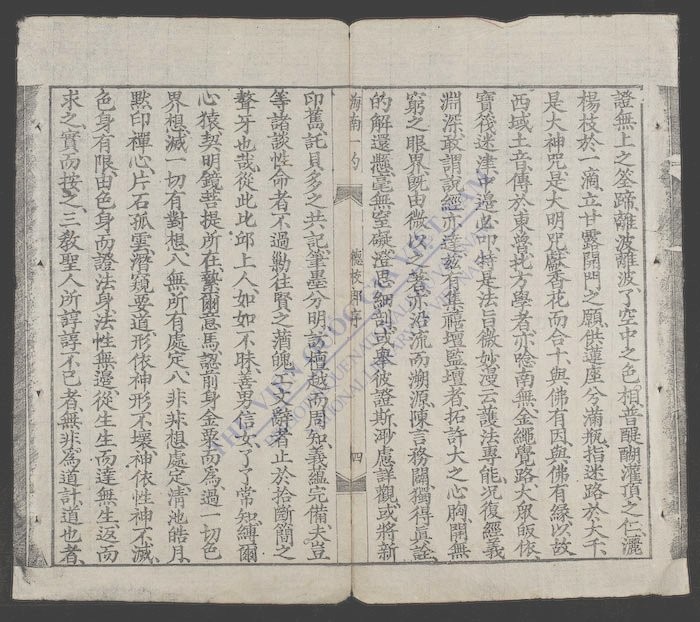 證無上之筌蹄離波離波了空中之色相普醍醐灌頂之仁灑
楊枝於一滴立甘露開門之願供蓮座兮滿瓶指迷路於大千
是大神咒是大明咒獻香花而合十與佛有因與佛有緣以故
西域土音傳於東魯北方學者亦唸南無金繩覺路大眾皈依
寶筏迷津中邊必叩特是法旨微妙漫云護法專能況復經義
淵深敢謂說經亦達茲有集禧壇監壇者拓許大之心胸開無
窮之眼界既由微以之著亦沿流而溯源陳言務闢獨得真詮
的解還懸毫無窒礙澄思細剖或舉彼證斯渺慮詳觀或將新
海南一勺 德校 序 四
印舊託貝多之共記筆墨分明訪檀越而周知義蘊完備夫豈
等諸談性命者不過勦往賢之糟魄工文辭者止於拾斷簡之
聱牙也哉從此比邱上人如如不昧善男信女了了常知縛爾
心猿契明鏡菩提所在縶爾意馬認前身金粟而為過一切色
界想滅一切有對想入無所有處定入非非想處定清池皓月
默印禪心片石孤雲潛窺要道形依神形不壞神依性神不滅
色身有限由色身而證法身法性無邊從生生而達無生返而
求之實而按之三教聖人所諄諄不已者無非為道計道也者